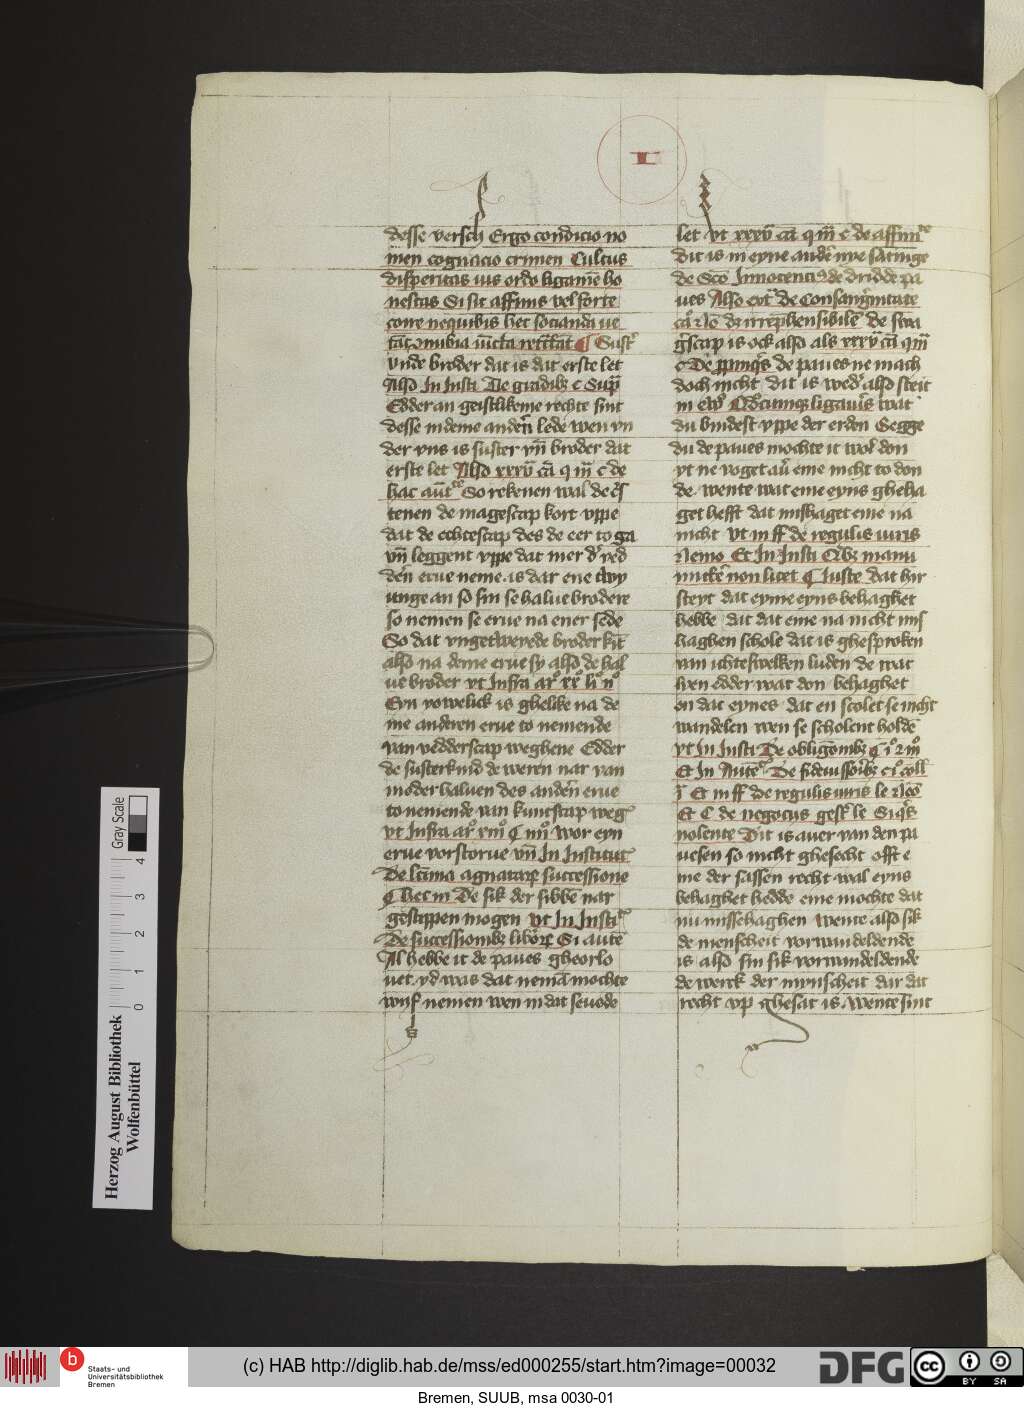 I
desse versch Ergo condicio no
men cognacio crimen Cultus
disperitas ius ordo ligamē ho
nestas Si sit affinis vel forte
coire nequibis hec socianda ve
tāt ɔnubia iūcta
vnde broder dat is dat erste let
Also In Insti De gradibꝫ c Sup̄
Edder an geistlikeme rechte sint
desse in deme andern̄ lede wen vn
der vns is suster vn̄ broder dat
erste let Also xxxv cā q iii c de
hac aūt So rekenen wal de
tenen de magescap kort vppe
dat de echtescap des de eer to ga
vn̄ leggent vppe dat mer
den erue neme is dar ene twy
unge an so sin se halue brodere
so nemen se erue na ener sede
So dat vngetweyede broder kīt
also na deme erue sy also de hal
ue broder vt Infra ar° xx li n°
Eyn yowelick is ghelike na de
me anderen erue to nemende
van vedderscap weghene Edder
de susterkind de weren nar van
moder haluen des andern̄ erue
to nemende van kuntscap weg
vt Infra ar° C iiii wor eyn
erue vorstorue vn̄ In Institut
De agnatorꝝ successione
C hec in De sik der sibbē nar
gestippen mogen vt In Insti
De successionibꝫ liborꝝ Si autē
Al hebbe it de paues gheorlo
uet yd was dat nemā mochte
wyf nemen wen in dat seuode
let vt xxxv cā q iii c de affini
dit is in eyne andē nye sātinge
de Sco Innocenci9 de dridde pa
ues Also De Consangwitate
irreph̄ensibilē de swa
gscap is ock also als xxxv cā q iii
c De de paues ne mach
doch nicht dit is wed also steit
in Qdcūmqꝫ ligaūis wat
du bindest vppe der erden Segge
du de paues mochte it wol don
yt ne voget aū eme nicht to don
de wente wat eme eyns gheha
get hefft dat mishaget eme na
nicht vt in ff de regulis iuris
Nemo Et In Insti Qbꝫ manu
mittē non licet C Iuste dat hir
steyt dat eyme eyns behaghet
hebbe dat dat eme na nicht mis
haghen schole dat is ghesproken
van ichteswelken luden de wat
lyen edder wat don behaghet
on dat eynes dat en scolet se nicht
wandelen wen se scholent holdē
vt In Insti De obligōnibꝫ
Et In Autē De fideiussoribꝫ c i° coll
Et in ff De regulis iuris le Nō
Et C de negociis gest le Siqs
nolente Dit is auer van den pa
uesen so nicht ghesecht offt e
me der sassen recht wal eyns
behaghet hedde eme mochte dat
nu missehaghen wente also sik
de menscheit vorwandelende
is also sin sik vorwandeldende
de werck der mynscheit dar dit
recht vp ghesat is wente sint
Gray Scale
0 1 2 3 4
Herzog August Bibliothek
Wolfenbüttel
b
Staats- und
Universitätsbibliothek
Bremen
(c) HAB http://diglib.hab.de/mss/ed000255/start.htm?image=00032
DFG
cc BY SA
Bremen, SUUB, msa 0030-01